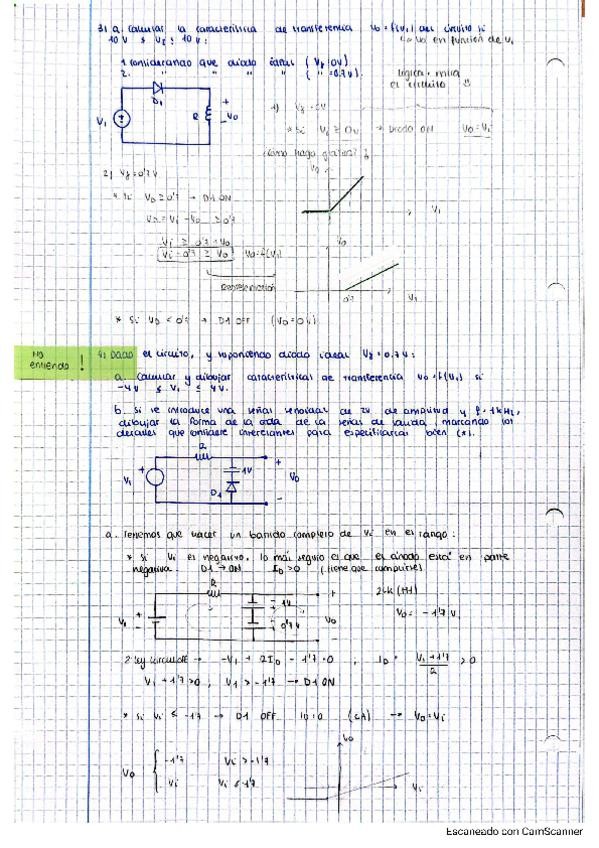 3) a. Calcular la característica de transferencia Vo = f(Vi) del circuito si
10V ≤ Vi ≤ 10V:
Vo en función de Vi
1. Considerando que diodo ideal (Vγ = 0V)
2. " " " " (" = 0.7V).
lógica + mira
el circuito
D1
Vi
R
+
- Vo
1) Vγ = 0V
* Si Vi ≥ 0V → Diodo ON Vo = Vi
¿Cómo hago gráfica?
Vo
Vi
2) Vγ = 0'7V
* Si VD ≥ 0'7 → D1 ON
VD = Vi - Vo ≥ 0'7
Vi ≥ 0'7 + Vo
Vi - 0'7 ≥ Vo Vo = f(Vi)
Representación
Vo
0'7
Vi
* Si VD < 0'7 → D1 OFF (Vo = 0V)
No
entiendo !
4) Dado el circuito, y suponiendo diodo ideal Vγ = 0.7V:
a. Calcular y dibujar características de transferencia Vo = f(Vi) si
-4V ≤ Vi ≤ 4V.
b. Si se introduce una señal senoidal de 2V de amplitud y f = 1kHz,
dibujar la forma de la onda de la señal de salida, marcando los
detalles que considere interesantes para especificarlas bien (*).
R
Vi
1V
D1
+
Vo
-
a. Tenemos que hacer un barrido completo de Vi en el rango:
* Si Vi es negativo, lo más seguro es que el ánodo esté en parte
negativa. D1 → ON ID > 0 (tiene que cumplirse)
R
Vi
1V
0'7V
+
Vo
-
Vo = -1'7 V
2ª ley Kirchhoff → -Vi + 2ID - 1'7 = 0 , ID = Vi + 1'7 / 2 > 0
Vi + 1'7 > 0, Vi > -1'7 → D1 ON
* Si Vi ≤ -1'7 → D1 OFF ID = 0 (CA) → Vo = Vi
Vo { -1'7 Vi > -1'7
Vi Vi ≤ -1'7
Vo
Vi
Escaneado con CamScanner